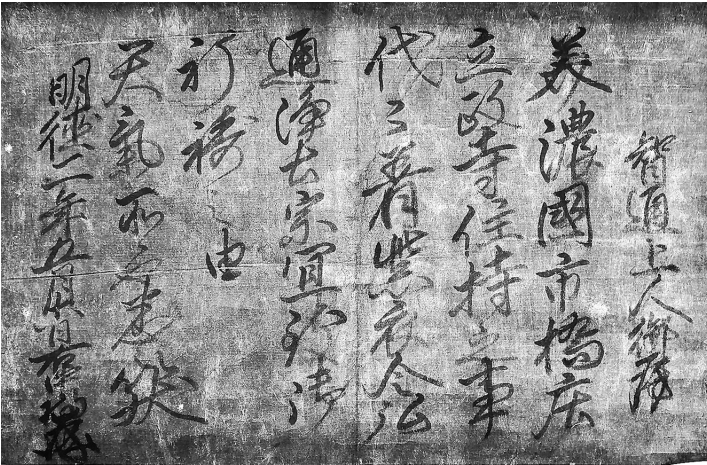 智通上人御房
美濃國市橋庄
立政寺住持之事
代々着紫衣令弘
通浄土宗宜致御
祈祷之由
天氣所
明徳二年五月